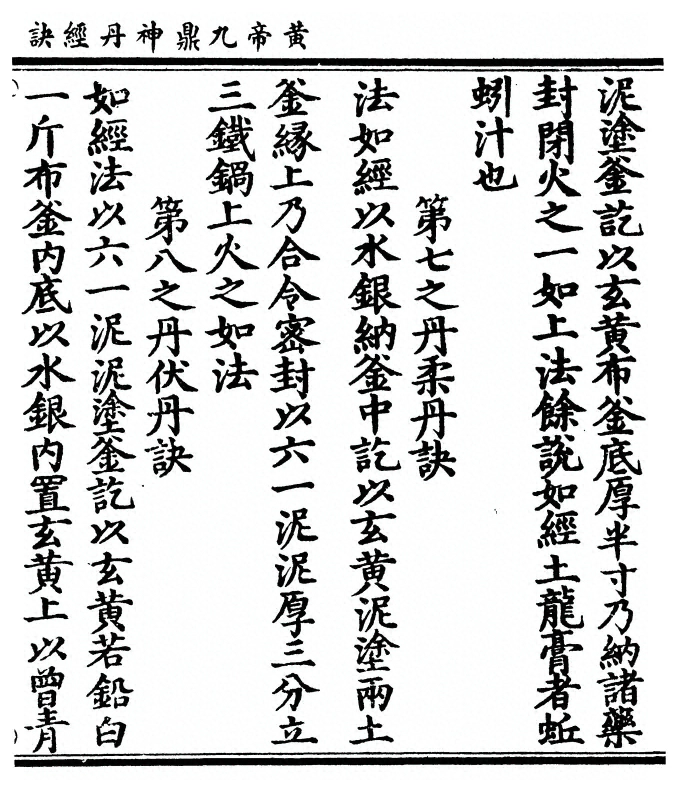 黃帝九鼎神丹經訣
泥塗釜訖以玄黃布釜底厚半寸乃納諸藥
封閉火之一如上法餘說如經土龍膏者蚯
蚓汁也
第七之丹柔丹訣
法如經以水銀納釜中訖以玄黃泥塗兩土
釜緣上乃合令密封以六一泥泥厚三分立
三鐵鍋上火之如法
第八之丹伏丹訣
如經法以六一泥泥塗釜訖以玄黃若鉛白
一斤布釜内底以水銀内置玄黃上以曾青